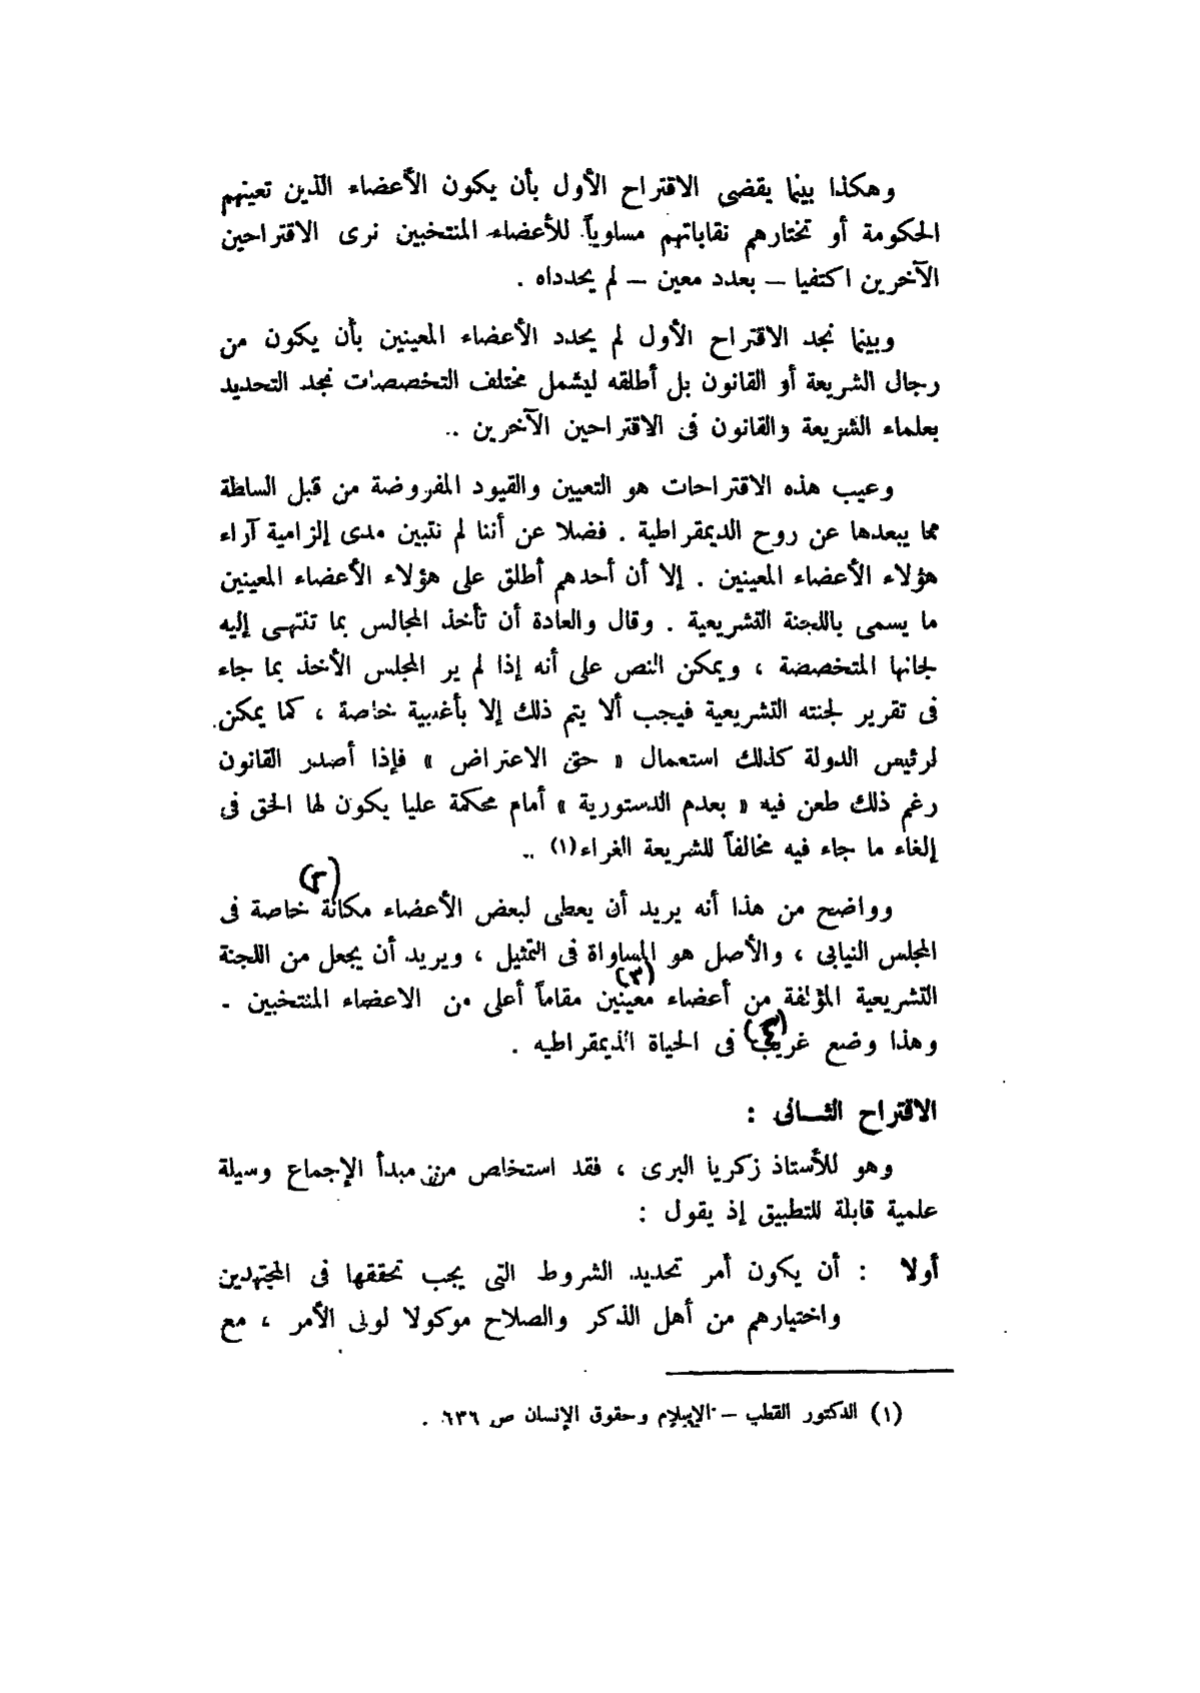 وهكذا بينما يقضى الاقتراح الأول بأن يكون الأعضاء الذين تعينهم
الحكومة أو تختارهم نقاباتهم مساوياً للأعضاء المنتخبين نرى الاقتراحين
الآخرين اكتفيا — بعدد معين — لم يحدداه .
وبينما نجد الاقتراح الأول لم يحدد الأعضاء المعينين بأن يكون من
رجال الشريعة أو القانون بل أطلقه ليشمل مختلف التخصصات نجد التحديد
بعلماء الشريعة والقانون فى الاقتراحين الآخرين ..
وعيب هذه الاقتراحات هو التعيين والقيود المفروضة من قبل السلطة
مما يبعدها عن روح الديمقراطية . فضلا عن أننا لم نتبين مدى إلزامية آراء
هؤلاء الأعضاء المعينين . إلا أن أحدهم أطلق على هؤلاء الأعضاء المعينين
ما يسمى باللجنة التشريعية . وقال والعادة أن تأخذ المجالس بما تنتهى إليه
لجانها المتخصصة ، ويمكن النص على أنه إذا لم ير المجلس الأخذ بما جاء
فى تقرير لجنته التشريعية فيجب ألا يتم ذلك إلا بأغلبية خاصة ، كما يمكن
لرئيس الدولة كذلك استعمال « حق الاعتراض » فإذا أصدر القانون
رغم ذلك طعن فيه « بعدم الدستورية » أمام محكمة عليا يكون لها الحق فى
إلغاء ما جاء فيه مخالفاً للشريعة الغراء(١) ..
وواضح من هذا أنه يريد أن يعطى لبعض الأعضاء مكانة (٢) خاصة فى
المجلس النيابى ، والأصل هو المساواة فى التمثيل ، ويريد أن يجعل من اللجنة
التشريعية المؤلفة من أعضاء معينين (٣) مقاماً أعلى من الاعضاء المنتخبين -
وهذا وضع غريب (٤) فى الحياة الديمقراطيه .
الاقتراح الثـانى :
وهو للأستاذ زكريا البرى ، فقد استخلص من مبدأ الإجماع وسيلة
علمية قابلة للتطبيق إذ يقول :
أولا : أن يكون أمر تحديد الشروط التى يجب تحققها فى المجتهدين
واختيارهم من أهل الذكر والصلاح موكولا لولى الأمر ، مع
(١) الدكتور القطب — الإسلام وحقوق الإنسان ص ٦٣٦ .